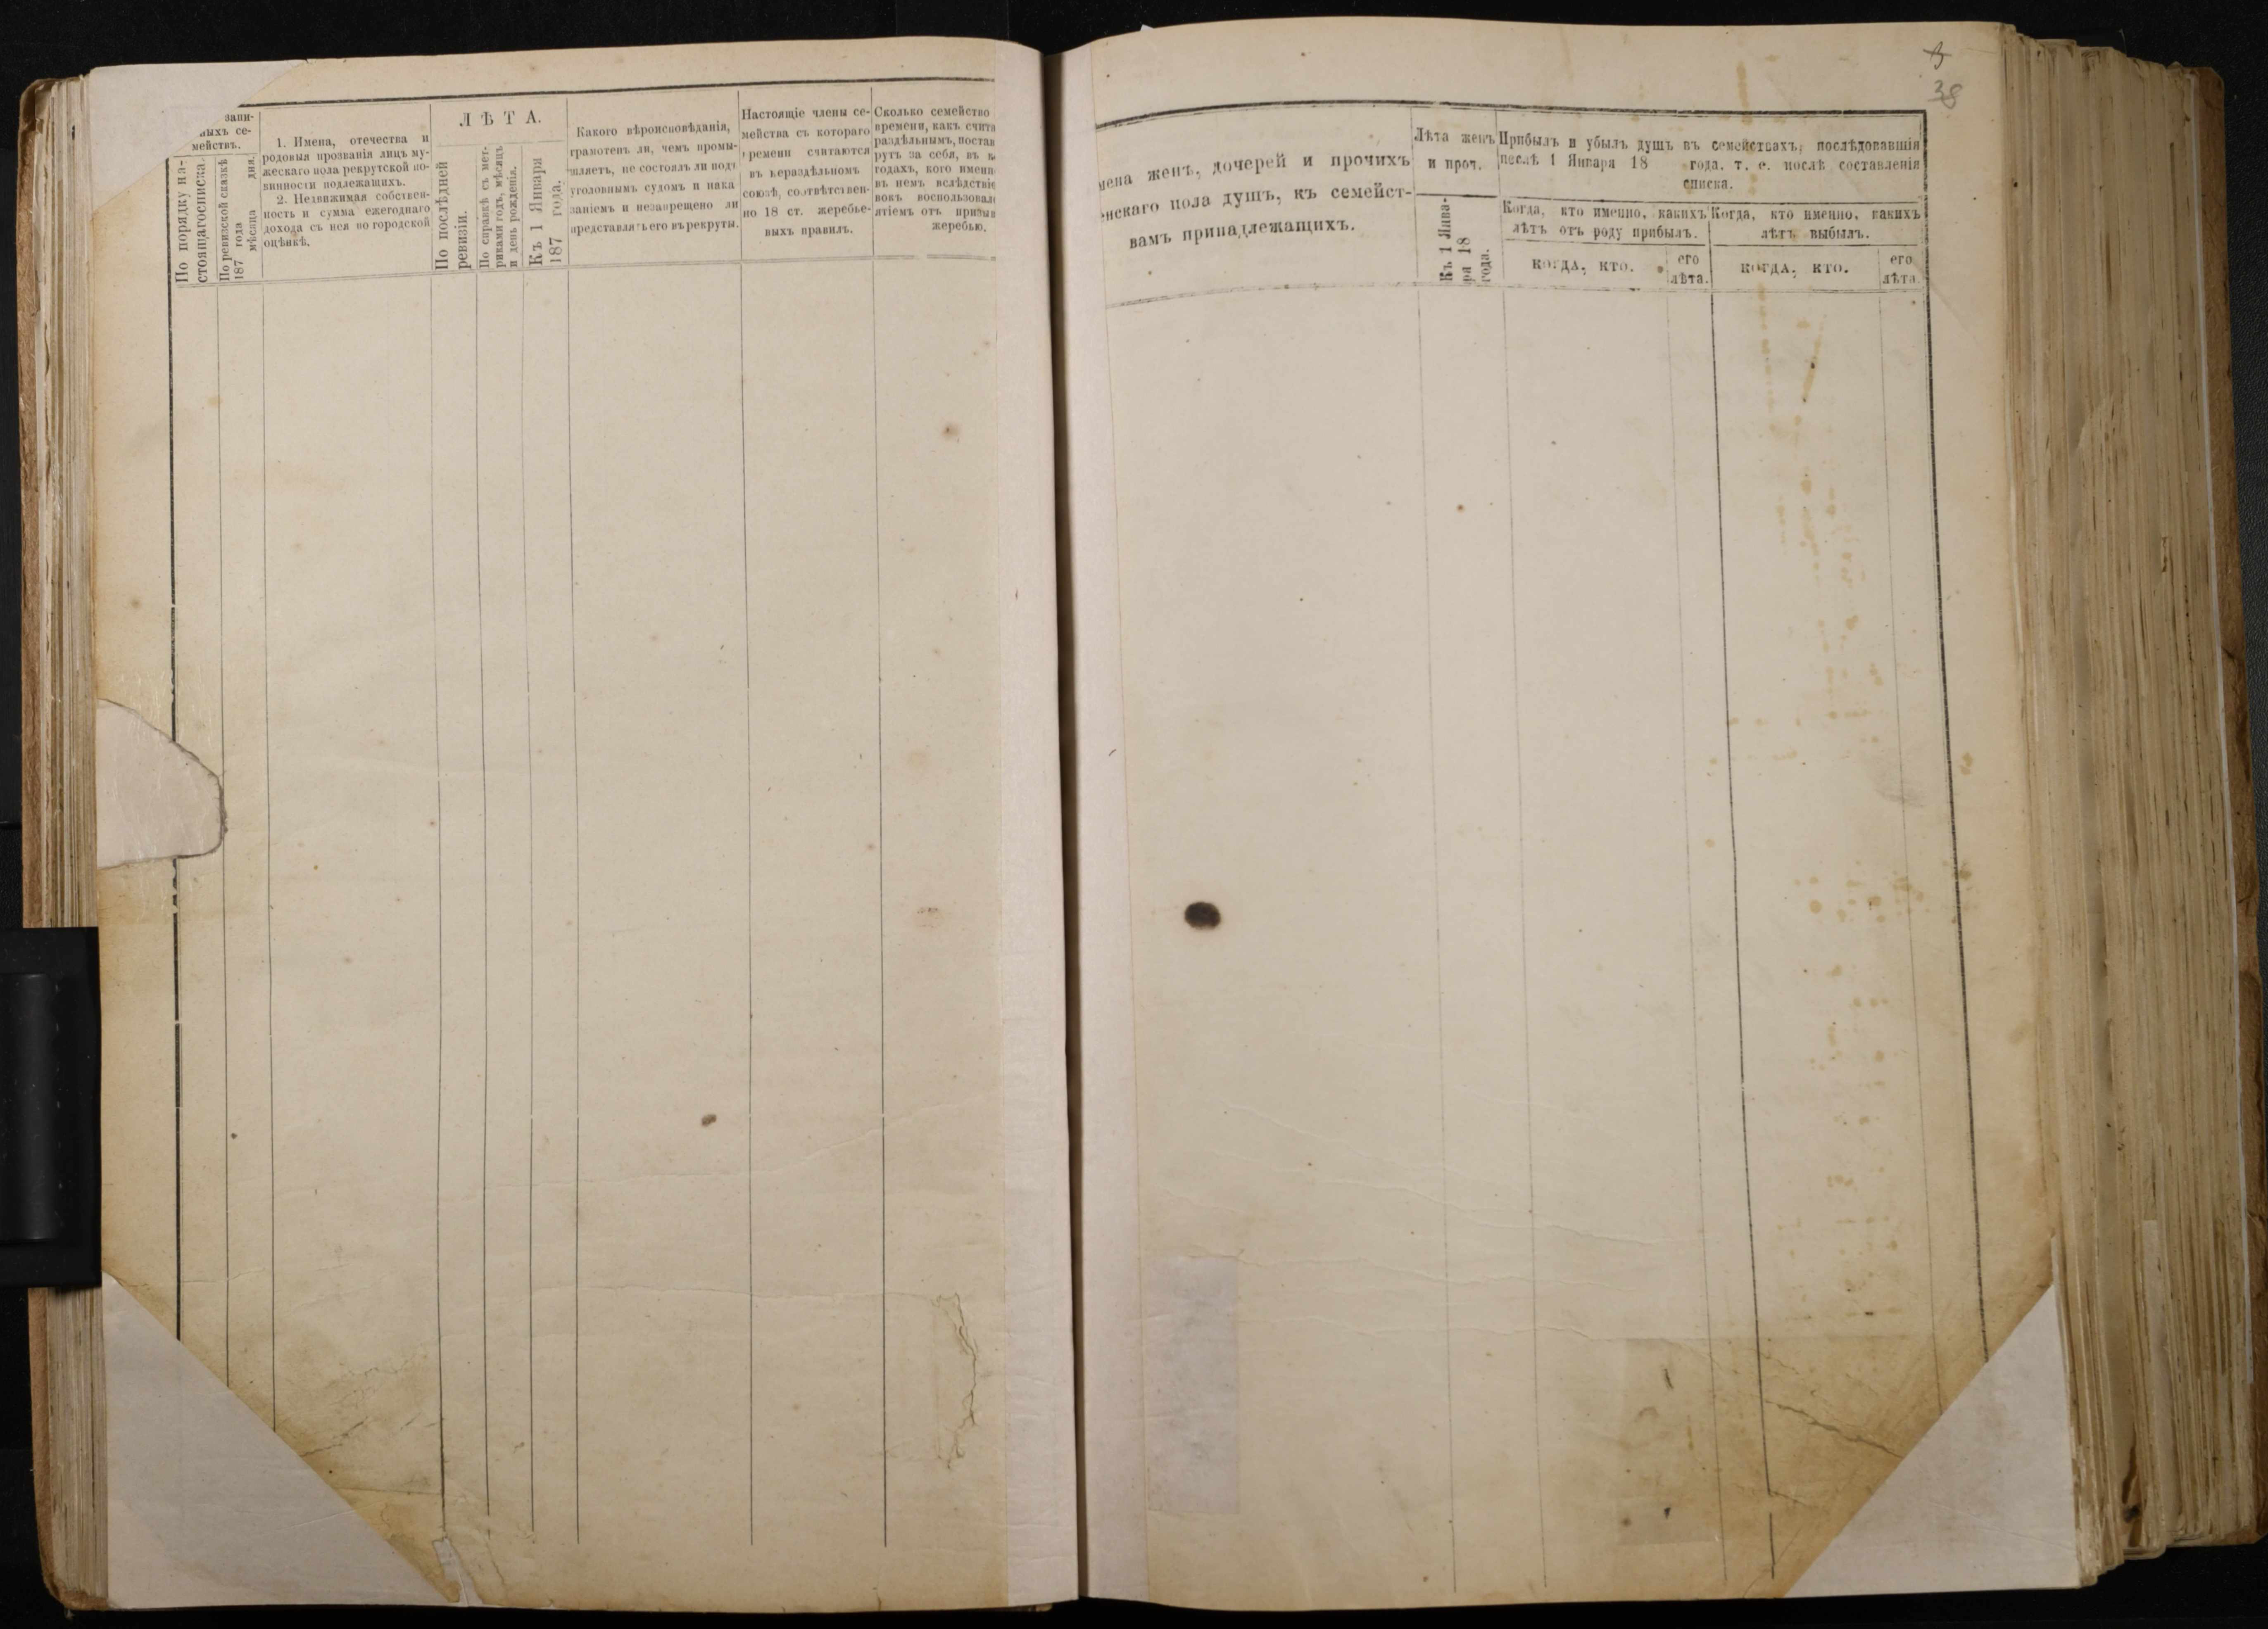 запи-
ныхъ се-
мействъ.
По порядку на-
стоящаго списка.
По ревизской сказкѣ
187 года
мѣсяца дня.
1. Имена, отечества и
родовыя прозванія лицъ му-
жескаго пола рекрутской по-
винности подлежащихъ.
2. Недвижимая собствен-
ность и сумма ежегоднаго
дохода съ нея по городской
оцѣнкѣ.
ЛѢТА.
По послѣдней
ревизіи.
По справкѣ съ мет-
риками годъ, мѣсяцъ
и день рожденія.
Къ 1 Января
187 года.
Какого вѣроисповѣданія,
грамотенъ ли, чемъ промы-
шляетъ, не состоялъ ли подъ
уголовнымъ судомъ и нака
заніемъ и незапрещено ли
представлять его въ рекруты.
Настоящіе члены се-
мейства съ котораго
времени считаются
въ нераздѣльномъ
союзѣ, соотвѣтствен-
но 18 ст. жеребье-
выхъ правилъ.
Сколько семейство
времени, какъ счита
раздѣльнымъ, постав
рутъ за себя, въ к
годахъ, кого именн
въ немъ вслѣдствіе
вокъ воспользовал
ятіемъ отъ призыв
жеребью.
3
38
мена женъ, дочерей и прочихъ
енскаго пола душъ, къ семейст-
вамъ принадлежащихъ.
Лѣта женъ
и проч.
Къ 1 Янва-
ря 18
года.
Прибыль и убыль душъ въ семействахъ, послѣдовавшія
послѣ 1 Января 18 года. т. е. послѣ составленія
списка.
Когда, кто именно, какихъ
лѣтъ отъ роду прибылъ.
КОГДА, КТО.
его
лѣта.
Когда, кто именно, какихъ
лѣтъ выбылъ.
КОГДА, КТО.
его
лѣта.